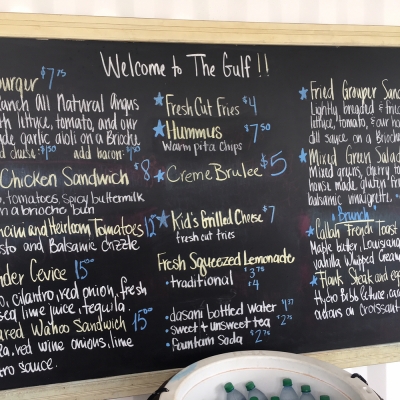 Welcome to The Gulf!!
burger $7.75
Ranch All Natural Angus
th lettuce, tomato, and our
de garlic aioli on a Brioch
add bacon:
Chicken Sandwich $8
o, tomatoes, spicy buttermilk
n a brioche bun
and Heirloom Tomatoes
sto and Balsamic Drizzle
nder Cevice 15.00
o, cilantro, red onion, fresh
sea, lime juice, tequila.
ared Wahoo Sandwich 15.00
la, red wine onions, lime
tro sauce.
Fresh Cut Fries $4
Hummus $7.50
Warm pita chips
Creme Brulee $5
Kid's Grilled Cheese $7
fresh cut fries
Fresh Squeezed Lemonade
• traditional
$4
• dasani bottled water
• sweet + unsweet tea $2.75
• fountain Soda $2.75
Fried Grouper Sand
Lightly breaded & fried
lettuce, tomato, & our ho
dill sauce on a Brioche
Mixed Green Salad
Mixed greens, cherry to
house made, gluten fre
balsamic vinaigrette.
Brunch
Challah French Toast
Maple butter, Louisiana
vanilla Whipped Cream
Flank Steak and eg
Hydro Bibb Lettuce, ca
on Croissant